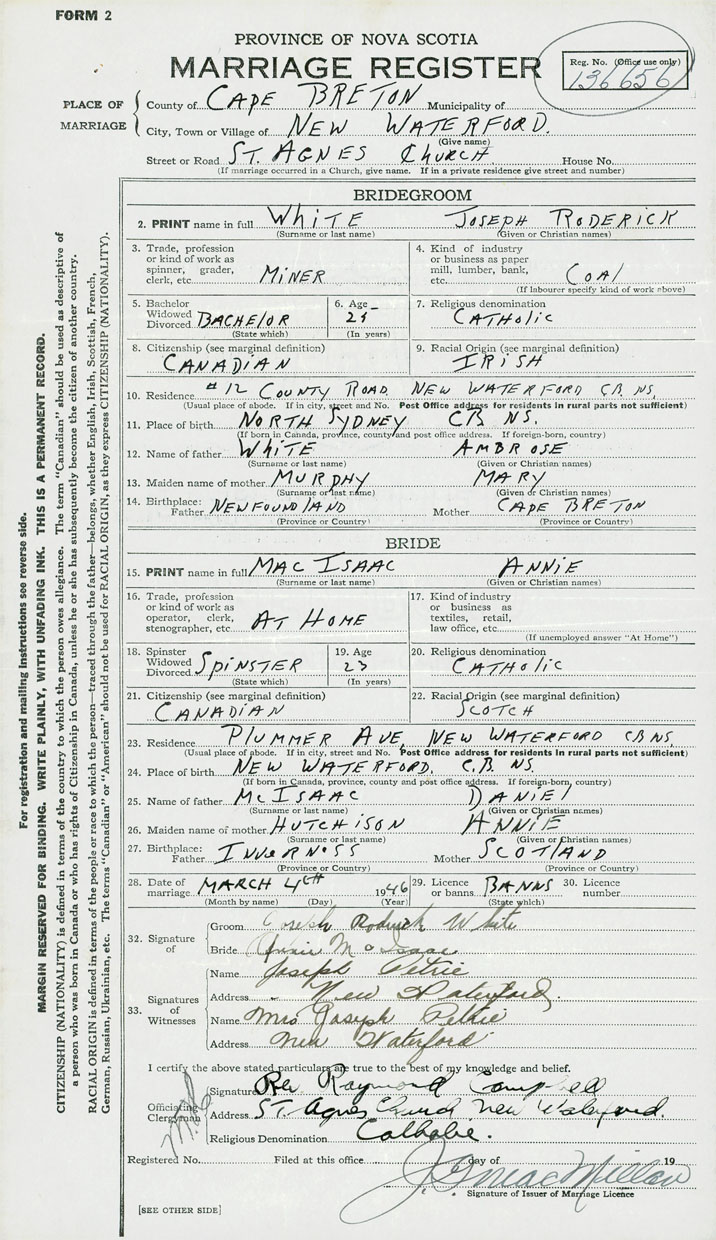 FORM 2
PROVINCE OF NOVA SCOTIA
MARRIAGE REGISTER
Reg. No. (Office use only)
136656
PLACE OF MARRIAGE
County of CAPE BRETON Municipality of
City, Town or Village of NEW WATERFORD.
(Give name)
Street or Road ST. AGNES CHURCH House No.
(If marriage occurred in a Church, give name. If in a private residence give street and number)
BRIDEGROOM
2. PRINT name in full WHITE JOSEPH RODERICK
(Surname or last name) (Given or Christian names)
3. Trade, profession or kind of work as spinner, grader, clerk, etc. MINER
4. Kind of industry or business as paper mill, lumber, bank, etc. COAL
(If labourer specify kind of work)
5. Bachelor Widowed Divorced BACHELOR
(State which)
6. Age 25
(In years)
7. Religious denomination
CATHOLIC
8. Citizenship (see marginal definition)
CANADIAN
9. Racial Origin (see marginal definition)
IRISH
10. Residence #12 COUNTY ROAD NEW WATERFORD CB. NS.
(Usual place of abode. If in city, street and No. Post Office address for residents in rural parts not sufficient)
11. Place of birth NORTH SYDNEY CB NS.
(If born in Canada, province, county and post office address. If foreign-born, country)
12. Name of father WHITE AMBROSE
(Surname or last name) (Given or Christian names)
13. Maiden name of mother MURPHY MARY
(Surname or last name) (Given or Christian names)
14. Birthplace: Father NEWFOUNDLAND Mother CAPE BRETON
(Province or Country) (Province or Country)
BRIDE
15. PRINT name in full MAC ISAAC ANNIE
(Surname or last name) (Given or Christian names)
16. Trade, profession or kind of work as operator, clerk, stenographer, etc. AT HOME
17. Kind of industry or business as textiles, retail, law office, etc.
(If unemployed answer "At Home")
18. Spinster Widowed Divorced SPINSTER
(State which)
19. Age 23
(In years)
20. Religious denomination
CATHOLIC
21. Citizenship (see marginal definition)
CANADIAN
22. Racial Origin (see marginal definition)
SCOTCH
23. Residence PLUMMER AVE, NEW WATERFORD CB.NS.
(Usual place of abode. If in city, street and No. Post Office address for residents in rural parts not sufficient)
24. Place of birth NEW WATERFORD. C.B. NS.
(If born in Canada, province, county and post office address. If foreign-born, country)
25. Name of father McISAAC DANIEL
(Surname or last name) (Given or Christian names)
26. Maiden name of mother HUTCHISON ANNIE
(Surname or last name) (Given or Christian names)
27. Birthplace: Father INVERNESS Mother SCOTLAND
(Province or Country) (Province or Country)
28. Date of marriage MARCH 4th 1946
(Month by name) (Day) (Year)
29. Licence or banns BANNS
(State which)
30. Licence number
32. Signature of
Groom Joseph Roderick White
Bride Annie McIsaac
33. Signatures of Witnesses
Name Joseph Petrie
Address New Waterford
Name Mrs Joseph Petrie
Address New Waterford
I certify the above stated particulars are true to the best of my knowledge and belief.
Officiating Clergyman
Signature Rev Raymond Campbell
Address ST. Agnes Church New Waterford.
Religious Denomination Catholic.
Registered No. Filed at this office day of 19
J. G. MacMillan
Signature of Issuer of Marriage Licence
[SEE OTHER SIDE]
For registration and mailing instructions see reverse side.
MARGIN RESERVED FOR BINDING. WRITE PLAINLY, WITH UNFADING INK. THIS IS A PERMANENT RECORD.
CITIZENSHIP (NATIONALITY) is defined in terms of the country to which the person owes allegiance. The term "Canadian" should be used as descriptive of
a person who was born in Canada or who has rights of Citizenship in Canada, unless he or she has subsequently become the citizen of another country.
RACIAL ORIGIN is defined in terms of the people or race to which the person—traced through the father—belongs, whether English, Irish, Scottish, French,
German, Russian, Ukrainian, etc. The terms "Canadian" or "American" should not be used for RACIAL ORIGIN, as they express CITIZENSHIP (NATIONALITY).